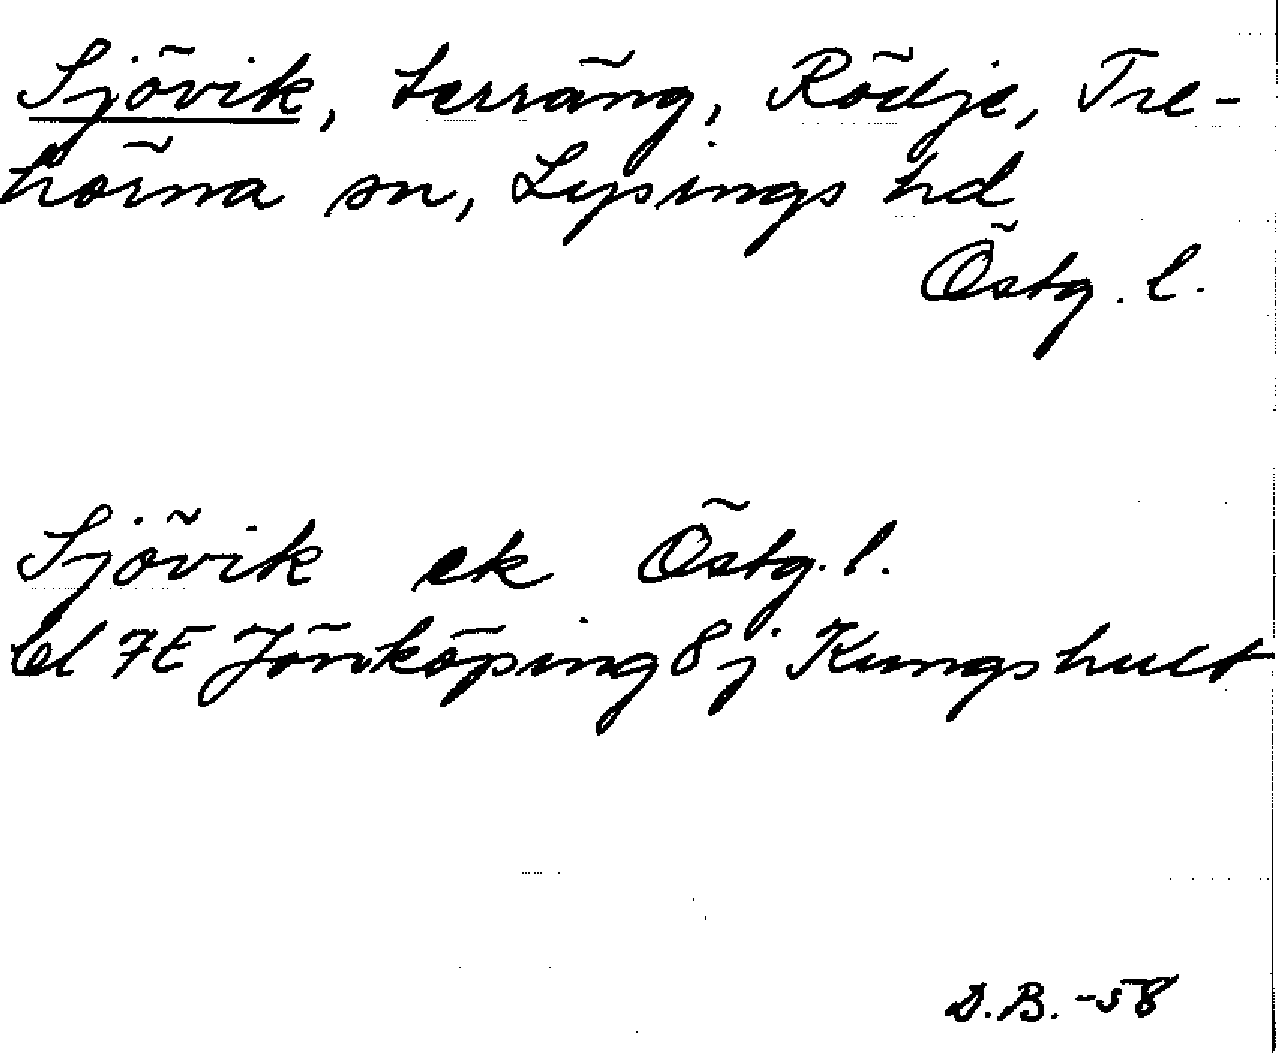 Sjövik, terräng, Rödje, Tre-
hörna sn, Lysings hd
Östg. l.
Sjövik ek Östg. l.
bl 7E Jönköping 8j Kungshult
D.B. -58